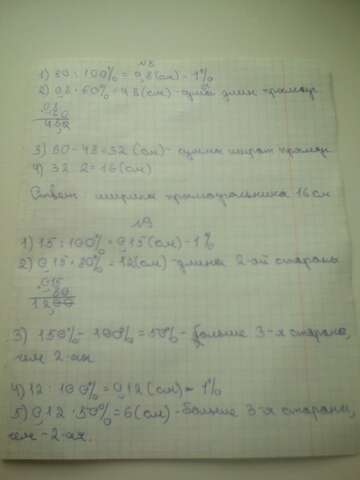 №8
1) 80 : 100% = 0,8 (см) - 1%
2) 0,8 · 60% = 48 (см) - сума длин прямоуг
0,8
60
48,0
3) 80 - 48 = 32 (см) - сумма ширин прямоуг
4) 32 : 2 = 16 (см)
Ответ: ширина прямоугольника 16 см
№9
1) 15 : 100% = 0,15 (см) - 1%
2) 0,15 · 80% = 12 (см) - длина 2-ой стороны
0,15
80
12,00
3) 150% - 100% = 50% - больше 3-я сторона,
чем 2-ая
4) 12 : 100% = 0,12 (см) - 1%
5) 0,12 · 50% = 6 (см) - больше 3-я сторона,
чем - 2-ая.